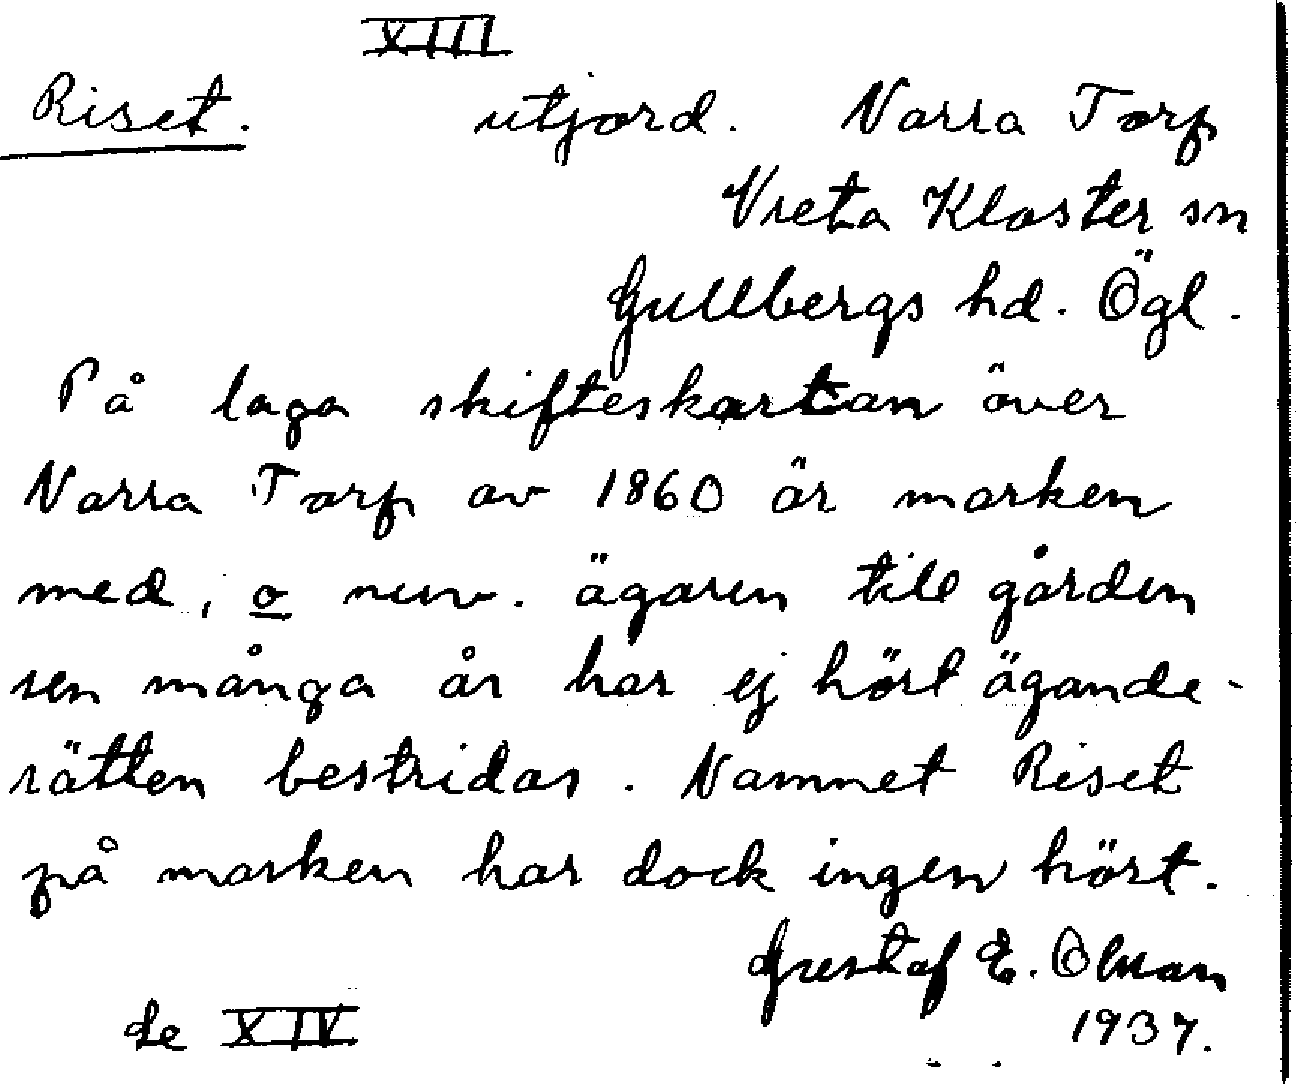 XIII
Riset. utjord. Norra Torp
Vreta Kloster sn
Gullbergs hd. Ögl.
På laga skifteskartan över
Norra Torp av 1860 är marken
med, o nuv. ägaren till gården
sen många år har ej hört ägande-
rätten bestridas. Namnet Riset
på marken har dock ingen hört.
Gustaf E. Olman
1937.
se XIV